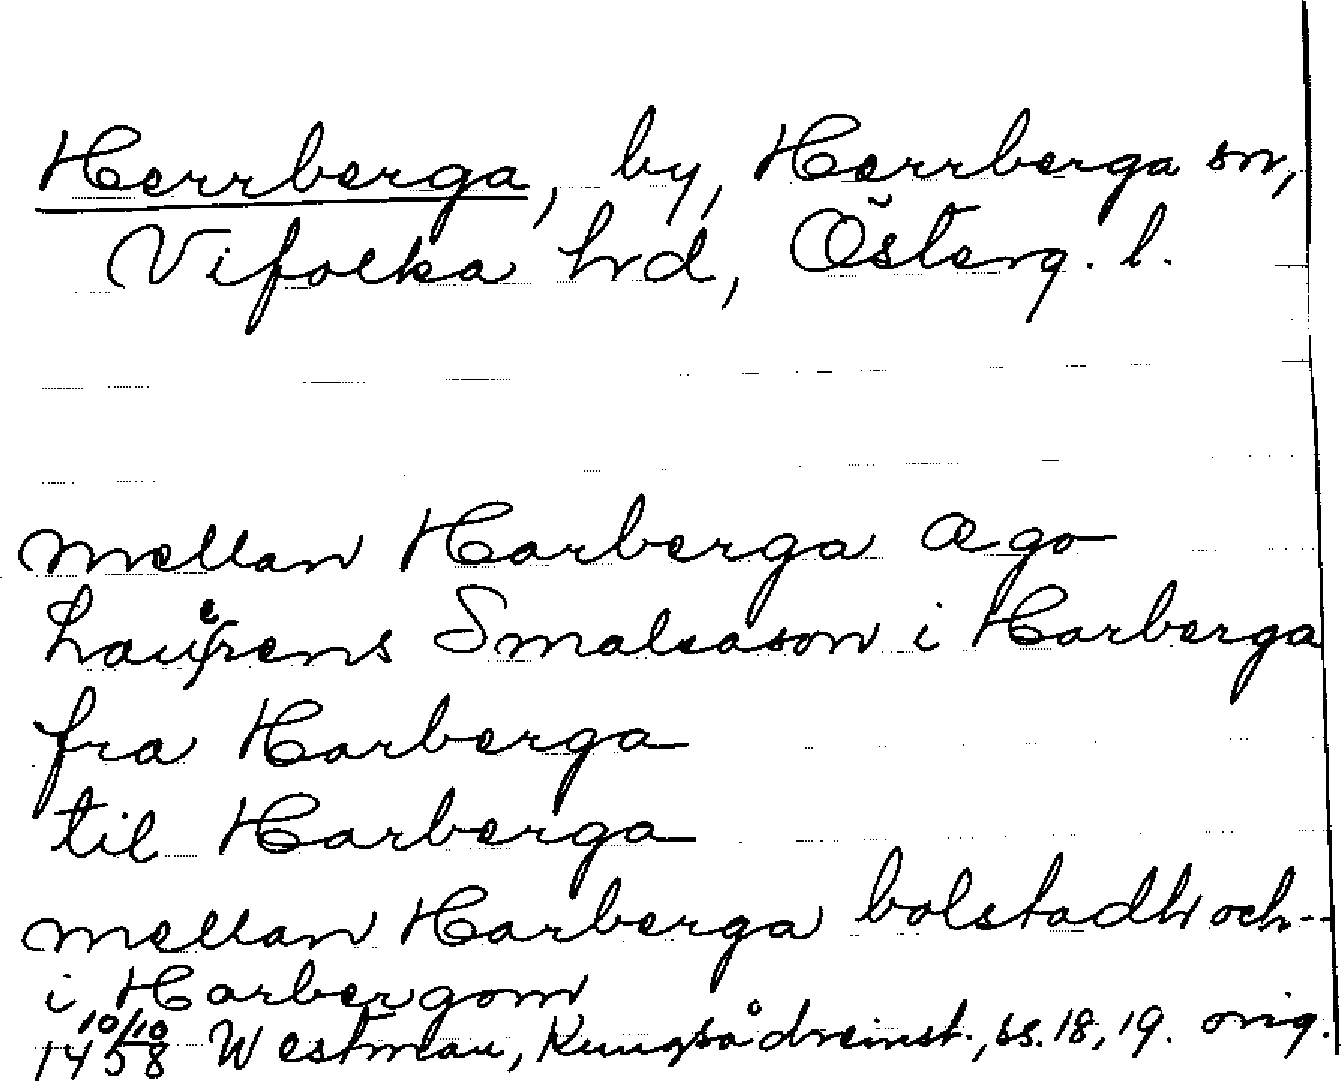 Herrberga, by, Herrberga sn,
Vifolka hrd, Österg. l.
mellan Harberga ægo
Laurens Smaleason i Harberga
fra Harberga
til Harberga
mellan Harberga bolstadh och--
i Harbergom
10/10 1458 Westman, Kungsådreinst., ss. 18, 19. orig.